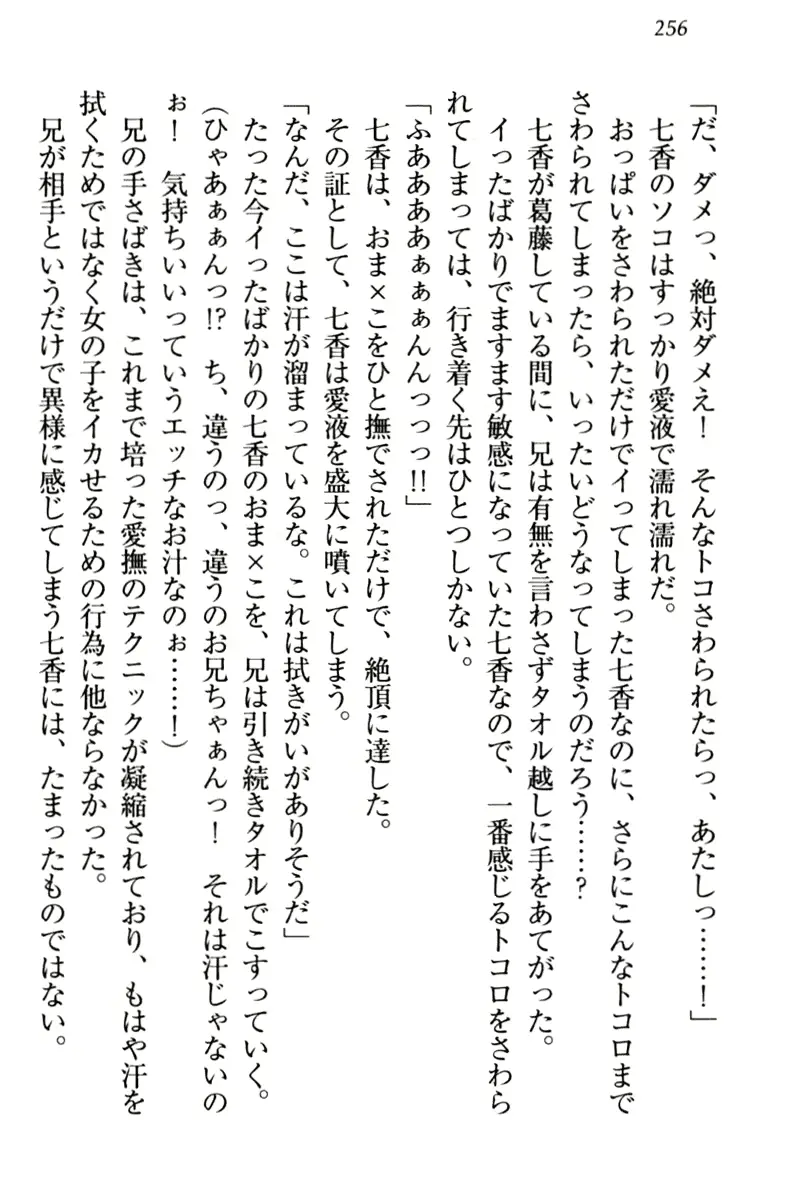 256
「だ、ダメっ、絶対ダメえ！　そんなトコさわられたらっ、あたしっ……！」
七香のソコはすっかり愛液で濡れ濡れだ。
おっぱいをさわられただけでイってしまった七香なのに、さらにこんなトコロまで
さわられてしまったら、いったいどうなってしまうのだろう……？
七香が葛藤している間に、兄は有無を言わさずタオル越しに手をあてがった。
イったばかりでますます敏感になっていた七香なので、一番感じるトコロをさわら
れてしまっては、行き着く先はひとつしかない。
「ふああああぁぁぁんんっっっ!!」
七香は、おま×こをひと撫でされただけで、絶頂に達した。
その証として、七香は愛液を盛大に噴いてしまう。
「なんだ、ここは汗が溜まっているな。これは拭きがいがありそうだ」
たった今イったばかりの七香のおま×こを、兄は引き続きタオルでこすっていく。
（ひゃあぁぁんっ!?　ち、違うのっ、違うのお兄ちゃぁんっ！　それは汗じゃないの
ぉ！　気持ちいいっていうエッチなお汁なのぉ……！）
兄の手さばきは、これまで培った愛撫のテクニックが凝縮されており、もはや汗を
拭くためではなく女の子をイカせるための行為に他ならなかった。
兄が相手というだけで異様に感じてしまう七香には、たまったものではない。